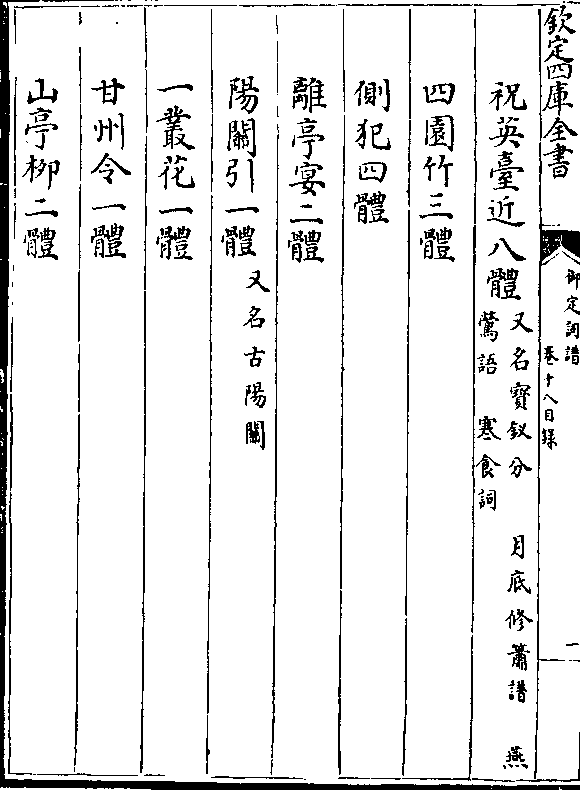 欽定四庫全書
御定詞譜
卷十八目録
一
祝英臺近八體 又名寶釵分 月底修簫譜 燕
鶯語 寒食詞
四園竹三體
側犯四體
離亭宴二體
陽關引一體 又名古陽關
一叢花一體
甘州令一體
山亭柳二體